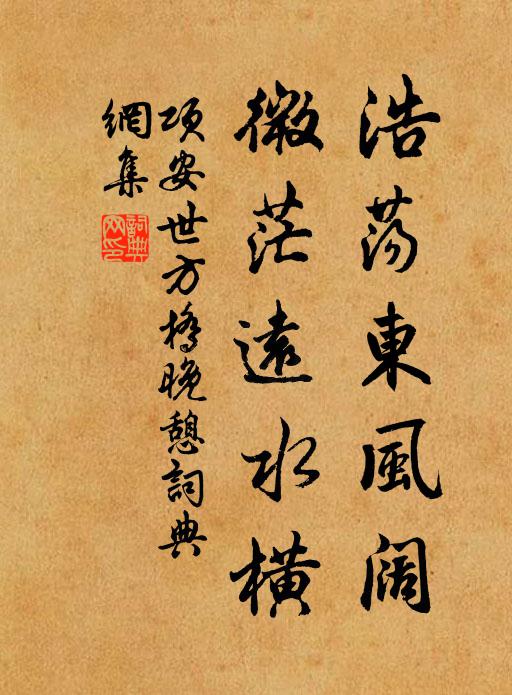 浩荡東風阔
微茫遠水橫
項安世方橋晚憩詞典
網集
詞典网印